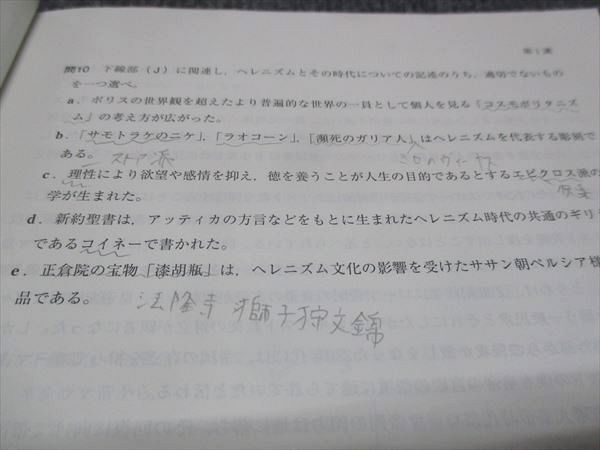 第1講
問10 下線部（J）に関連し，ヘレニズムとその時代についての記述のうち，適切でないもの
を一つ選べ。
a．ポリスの世界観を超えたより普遍的な世界の一員として個人を見る「コスモポリタニズ
ム」の考え方が広がった。
b．「サモトラケのニケ」，「ラオコーン」，「瀕死のガリア人」はヘレニズムを代表する彫刻で
ある。
ストア派
ミロのヴィーナス
c．理性により欲望や感情を抑え，徳を養うことが人生の目的であるとするエピクロス派の
学が生まれた。
d．新約聖書は，アッティカの方言などをもとに生まれたヘレニズム時代の共通のギリ
であるコイネーで書かれた。
e．正倉院の宝物「漆胡瓶」は，ヘレニズム文化の影響を受けたササン朝ペルシア様
品である。
法隆寺 獅子狩文錦